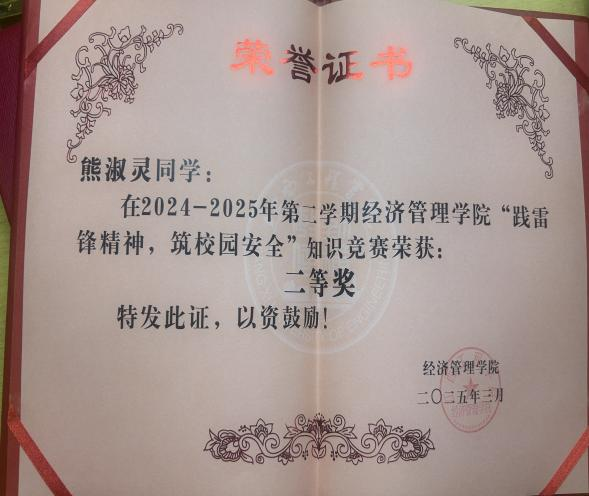 荣誉证书
熊淑灵同学：
在2024-2025年第二学期经济管理学院“践雷
锋精神，筑校园安全”知识竞赛荣获：
二等奖
特发此证，以资鼓励！
经济管理学院
二〇二五年三月